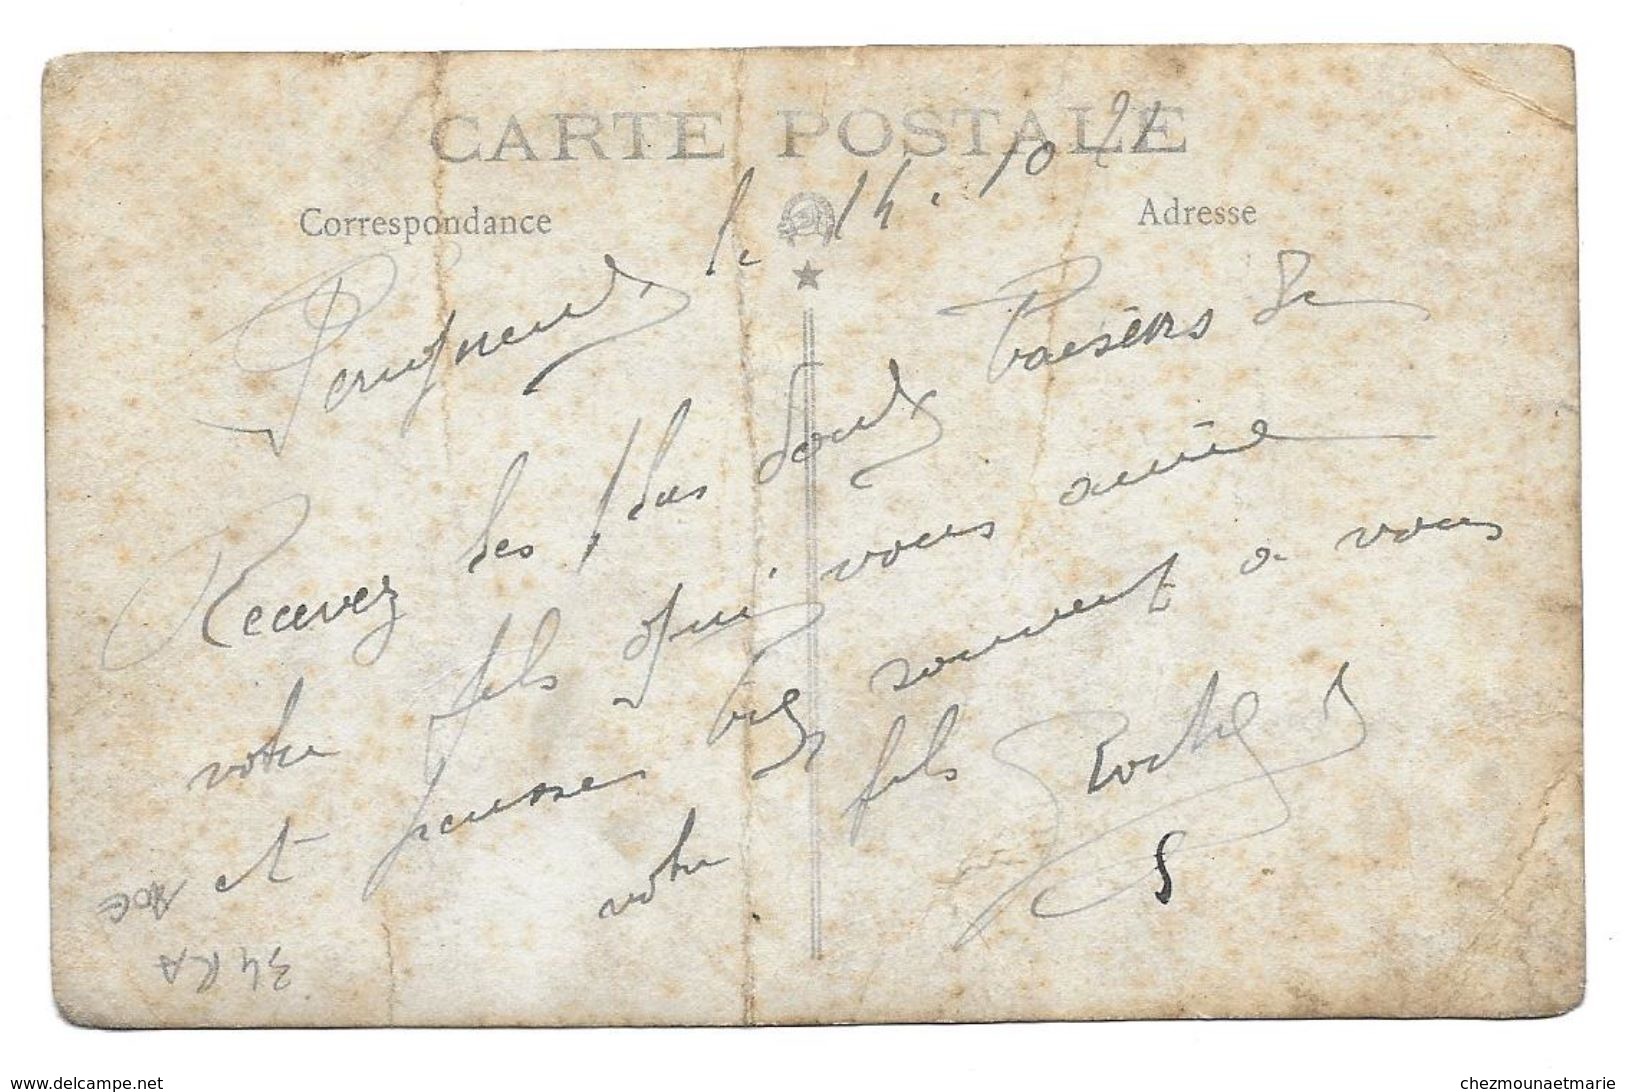 CARTE POSTALE
Correspondance
Adresse
Perigueux le 14. 10 21
Recevez les plus doux Baisers De
votre fils qui vous aime
et pense bien souvent a vous
votre fils
34 RA
10€
www.delcampe.net
chezmounaetmarie